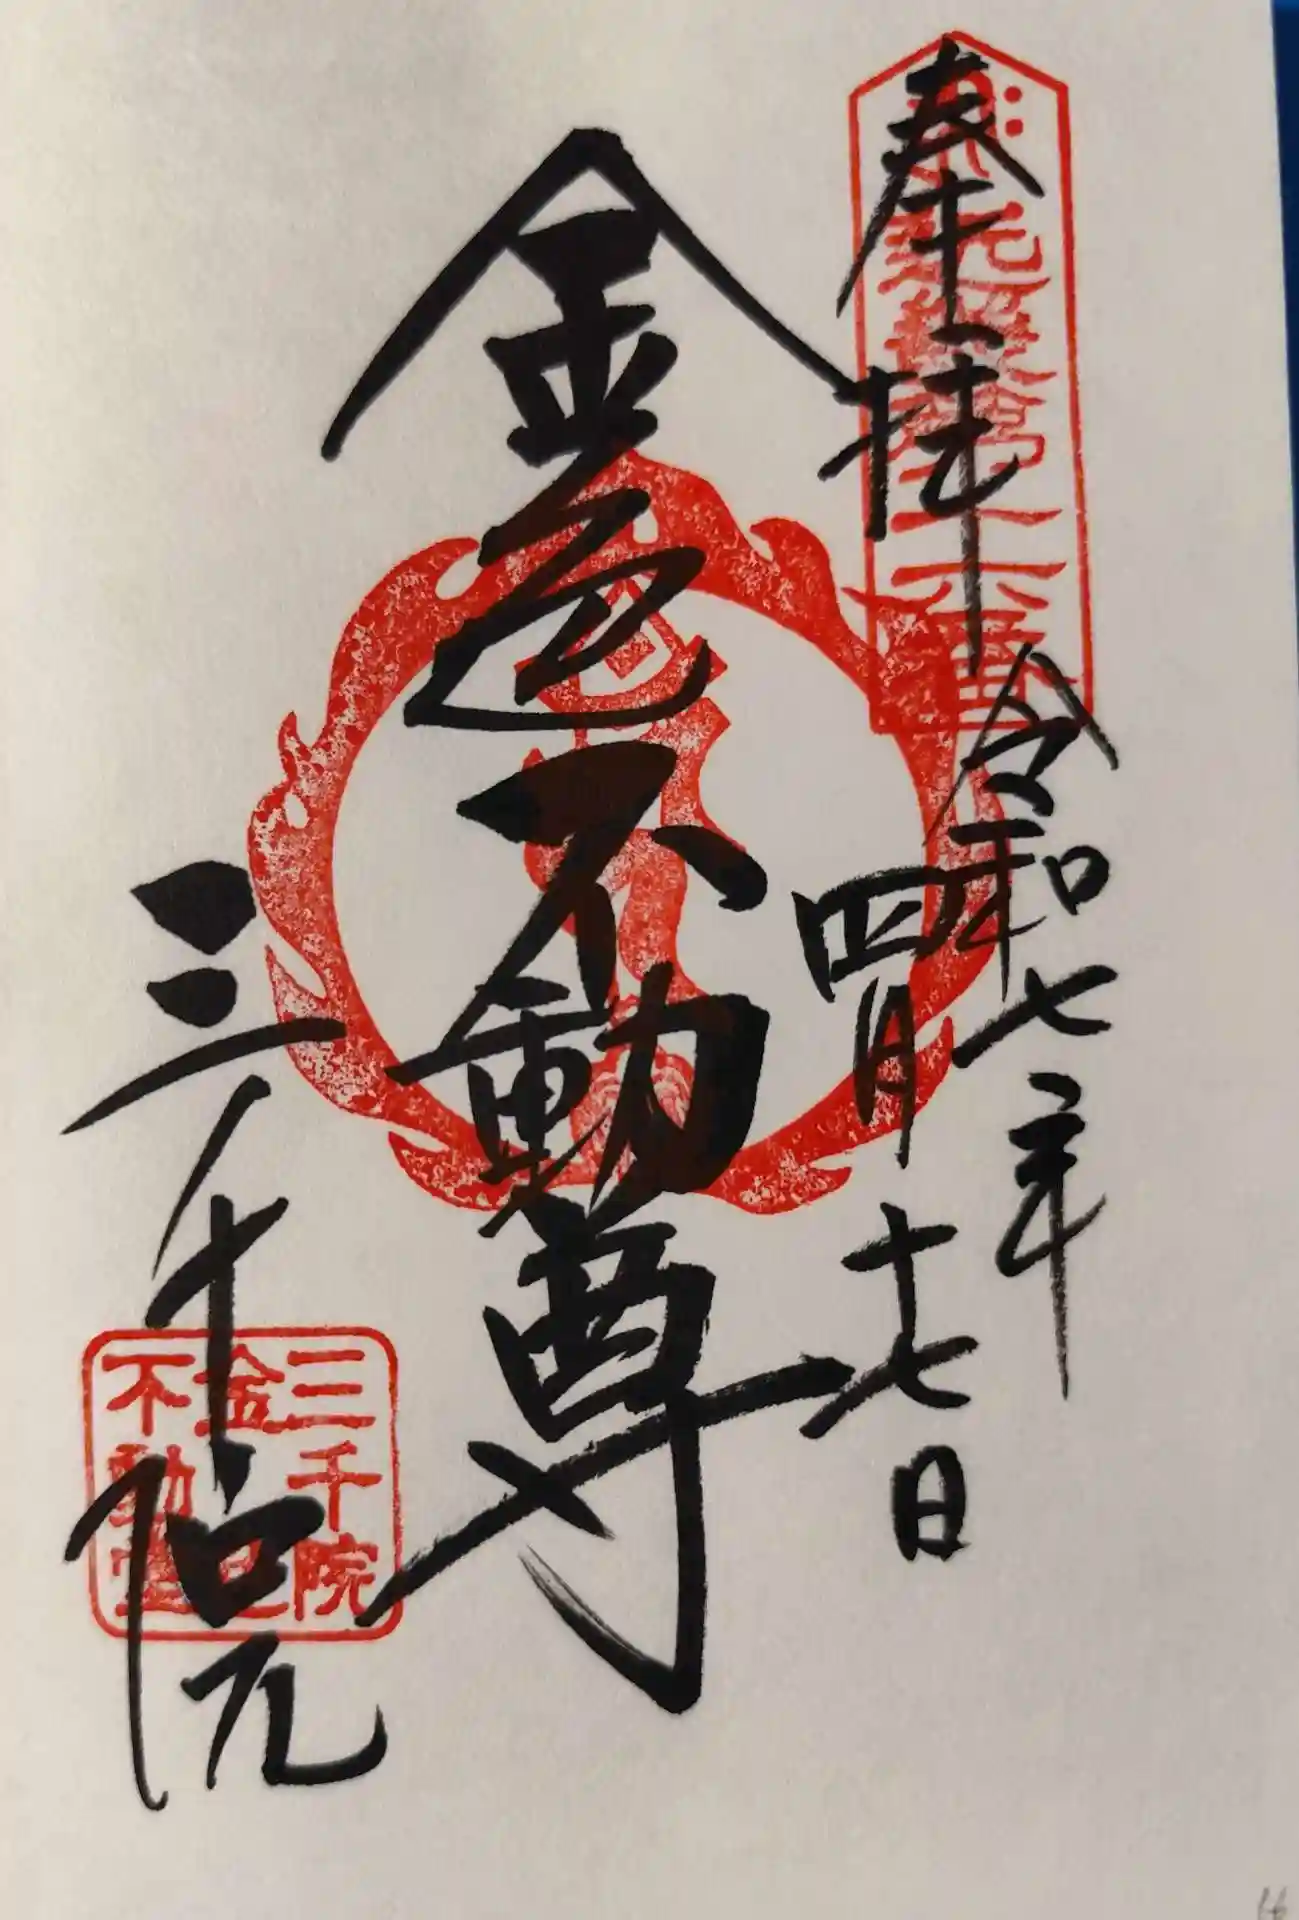 奉拝
令和七年
四月十七日
金色不動尊
三千院
近畿第十六番
三千院
金色
不動堂